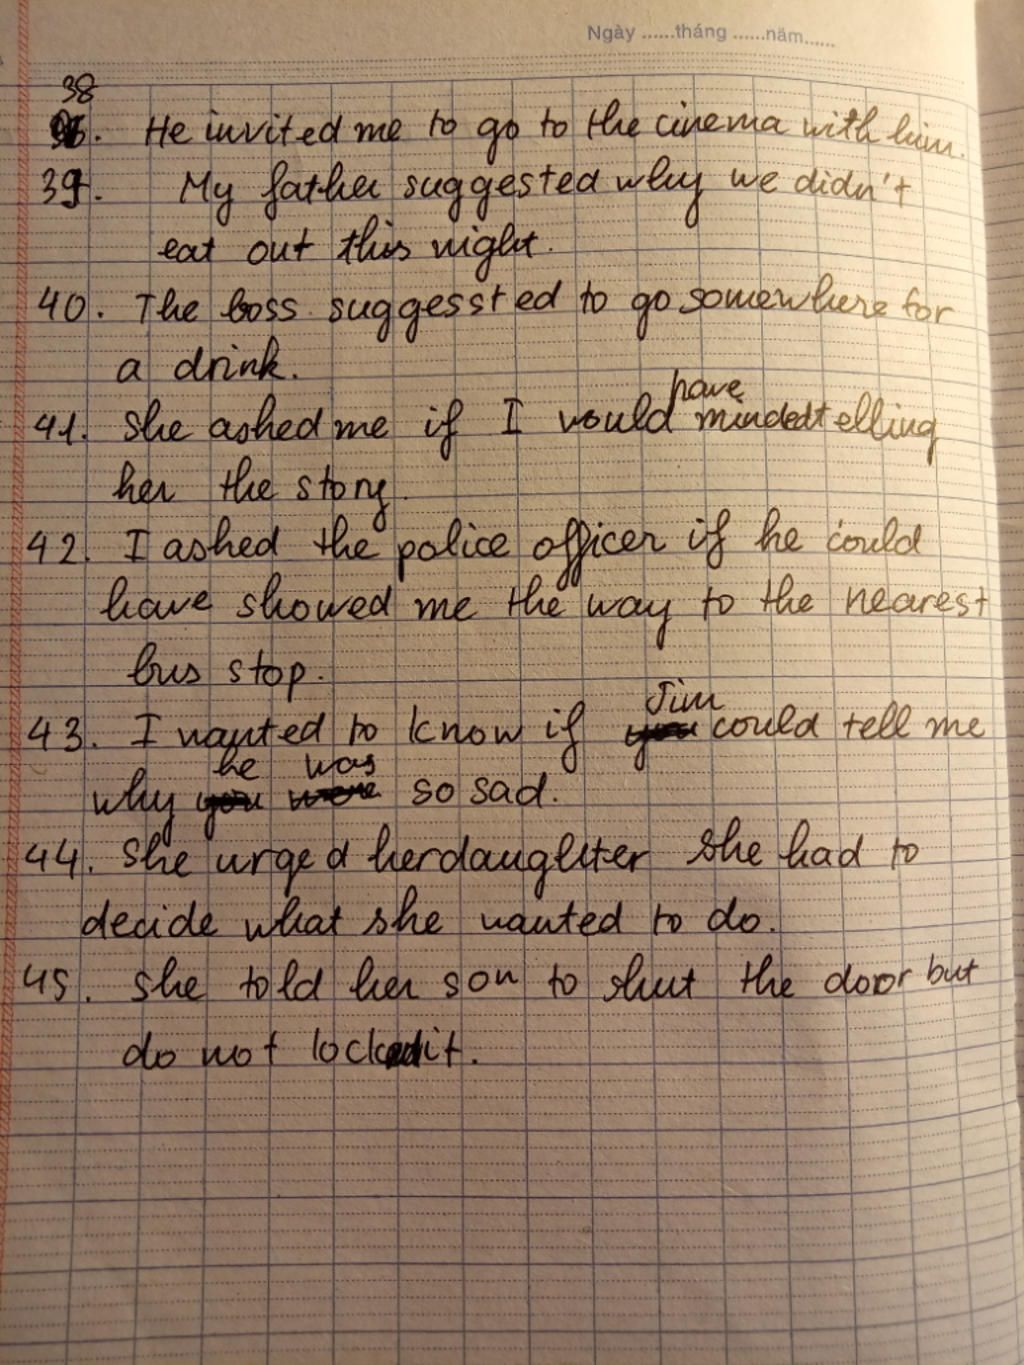 Ngày ......tháng ......năm......
38. He invited me to go to the cinema with him.
39. My father suggested why we didn't
eat out this night.
40. The boss suggessted to go somewhere for
a drink.
have
41. She asked me if I would minded telling
her the story.
42. I asked the police officer if he could
have showed me the way to the nearest
bus stop.
Jim
43. I wanted to know if you could tell me
he was
why you were so sad.
44. She urged her daughter she had to
decide what she wanted to do.
45. She told her son to shut the door but
do not lock it.